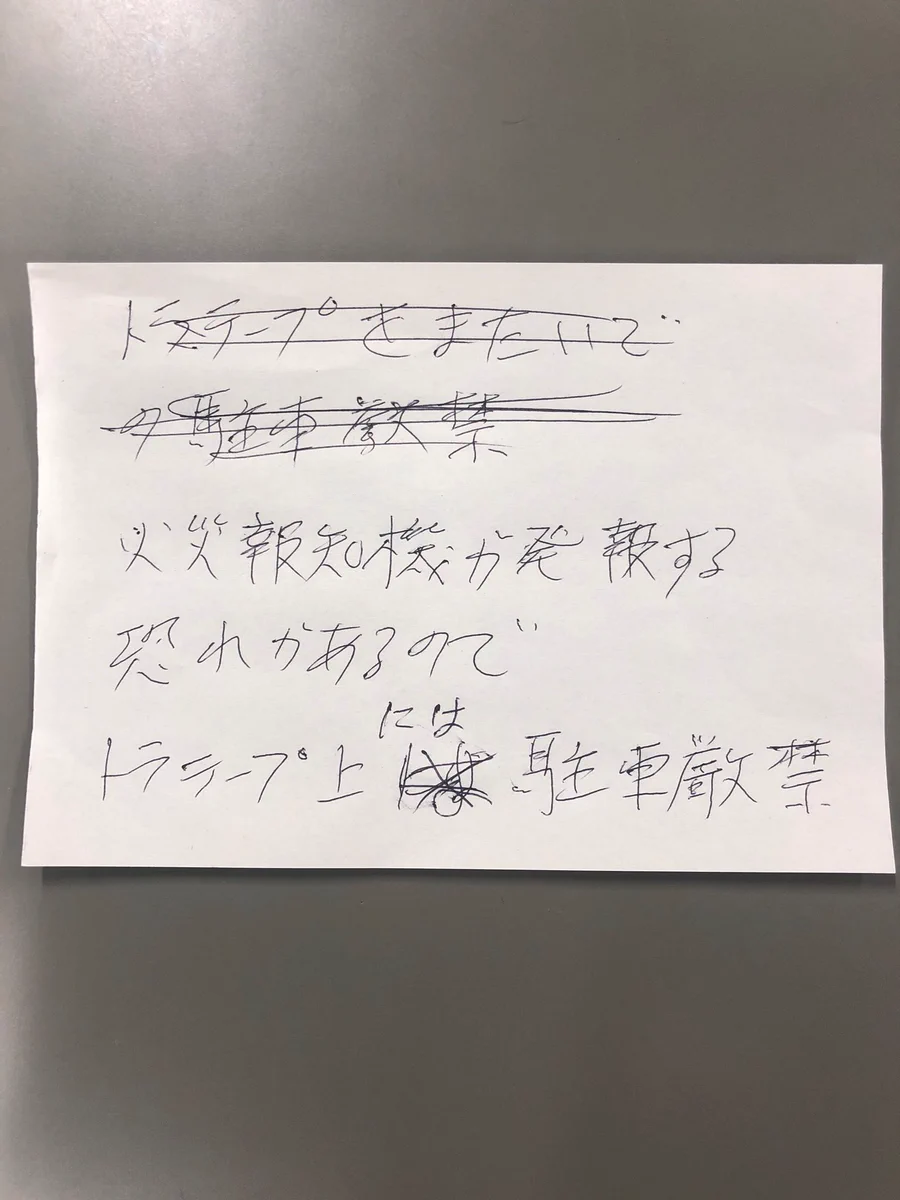 トラテープをまたいで
の駐車厳禁
火災報知機が発報する
恐れがあるので
には
トラテープ上 駐車厳禁